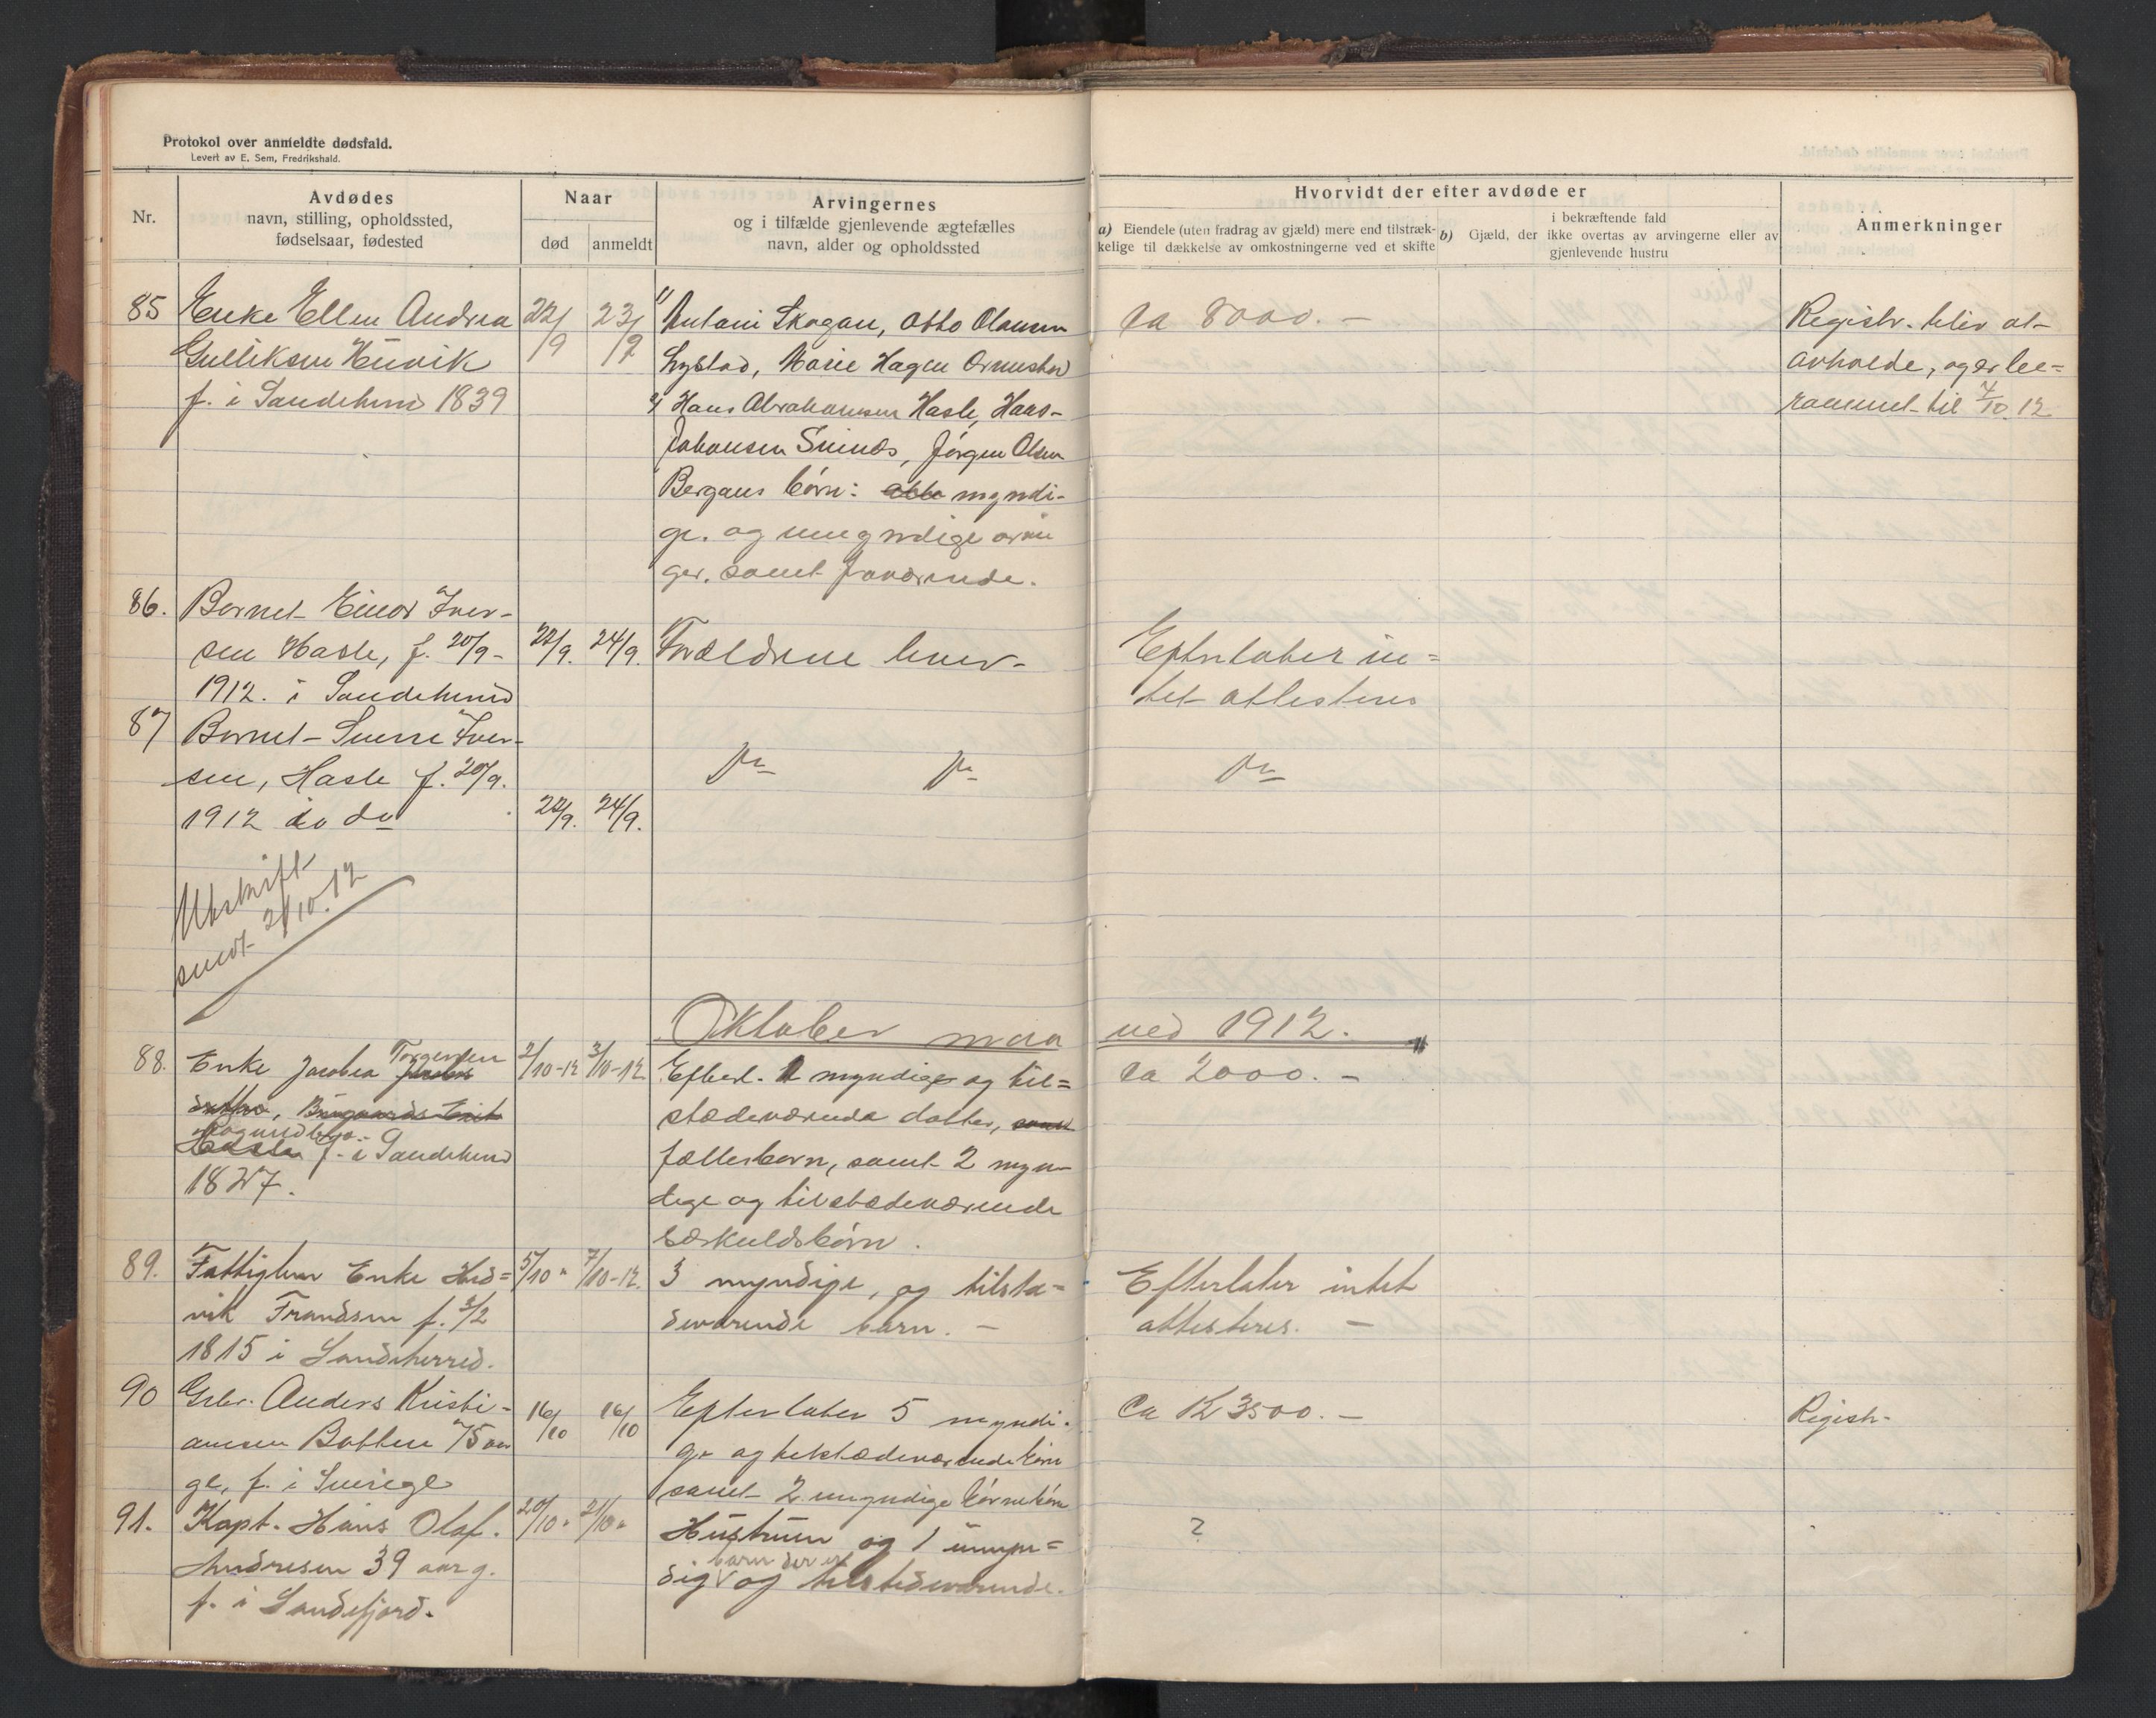 Protokol over anmeldte dødsfald.
Levert av E. Sem, Fredrikshald.
Nr.
Avdødes
navn, stilling, opholdssted,
fødselsaar, fødested
Naar
død
anmeldt
Arvingernes
og i tilfælde gjenlevende ægtefælles
navn, alder og opholdssted
Hvorvidt der efter avdøde er
a) Eiendele (uten fradrag av gjæld) mere end tilstræk-
kelige til dækkelse av omkostningerne ved et skifte
i bekræftende fald
b) Gjæld, der ikke overtas av arvingerne eller av
gjenlevende hustru
Anmerkninger
85 Enke Ellen Andrea 22/9 23/9 Skogan, Otto Olausen ca 8000. - Registr. blev at-
Gulliksen Hüvik Lystad, Marie Hagen avholde, og er be-
f. i Sandeherred 1839 Hans Abrahamsen Hasle, Hans til 4/10.12
Johansen Svines, Jørgen Olsen
Bergans børn: alle myndi-
ge. og umyndige arvin
ger. samt
86. Barnet Einar Iver-
sen Hasle, f. 20/9- 22/9. 24/9. Forældrene lever. Efterlater in=
1912. i Sandeherred tet attesteres
87 Barnet Sverre Iver-
sen, Hasle f. 20/9. do do do
1912 i do 22/9. 24/9.
Utskrift
sendt 2/10.12
Oktober maa ned 1912.
88. Enke Jacobea Torgersen 2/10-12 3/10-12 Efterl. 1 myndige og til= ca 2000. -
stædeværende datter, samt
f. i Sandeherred fællesbarn, samt 2 myn-
1827. dige og tilstædeværende
særkuldsbørn.
89. Fattiglem Enke Hed= 5/10 " 7/10-12. 3 myndige, og tilstæ= Efterlater intet
vik Frandsen f. 3/2 deværende barn. - attesteres. -
1815 i Sandeherred.
90 Grbr. Anders Kristi- 16/10 16/10 Efterlater 5 myndi- Ca K 3500. - Registr.
ansen Botten 75 aar ge og tilstædeværende børn
gl, f. i Sverige samt 2 umyndige børnebørn
91. Kapt. Hans Olaf. 20/10 " 21/10 " Hustruen og 1 umyn= ?
Andresen 39 aar g. barn der er
dig og tilstedeværende.
f. i Sandefjord.